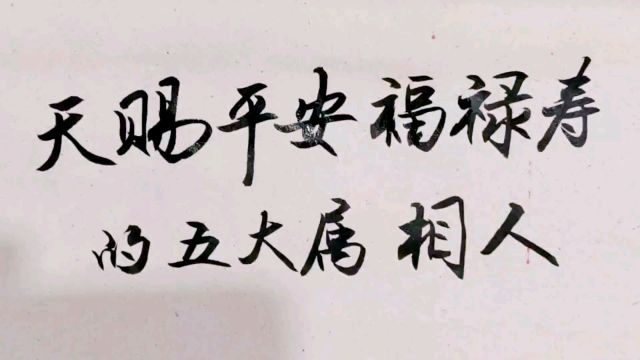 天赐平安福禄寿
的五大属相人